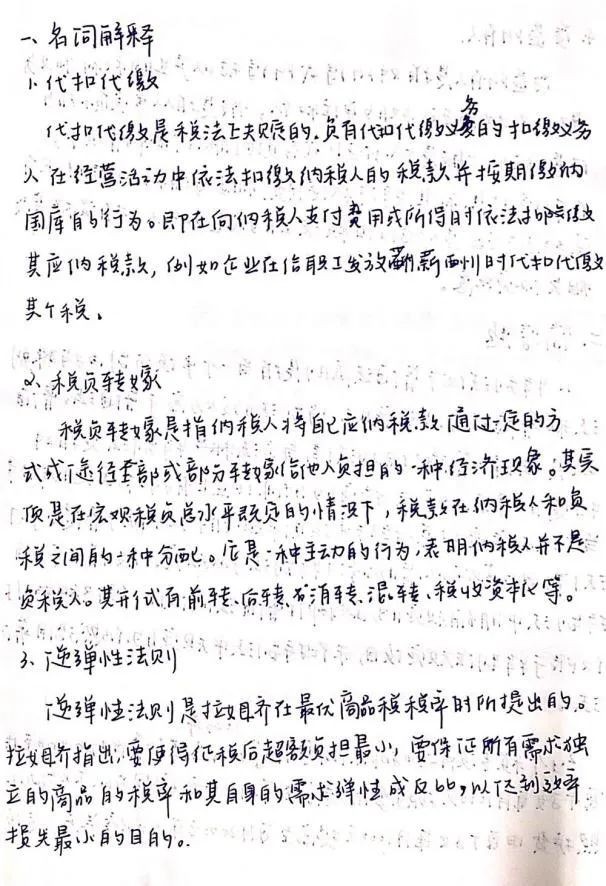 一、名词解释
1、代扣代缴
代扣代缴是税法上规定的,负有代扣代缴义务的扣缴义务
人在经营活动中依法扣缴纳税人的税款并按期缴纳
国库的行为。即在向纳税人支付费用或所得时依法扣除缴
其应纳税款,例如企业在给职工发放薪酬时代扣代缴
其个税。
2、税负转嫁
税负转嫁是指纳税人将自己应纳税款通过一定的方
式或途径全部或部分转嫁给他人负担的一种经济现象。其实
质是在宏观税负总水平既定的情况下,税款在纳税人和负
税之间的一种分配。它是一种主动的行为,表明纳税人并不是
负税人。其形式有前转、后转、消转、混转、税收资本化等。
3、逆弹性法则
逆弹性法则是拉姆齐在最优商品税税率时所提出的。
拉姆齐指出,要使得征税后超额负担最小,要保证所有需求独
立的商品的税率和其自身的需求弹性成反比,以达到效率
损失最小的目的。